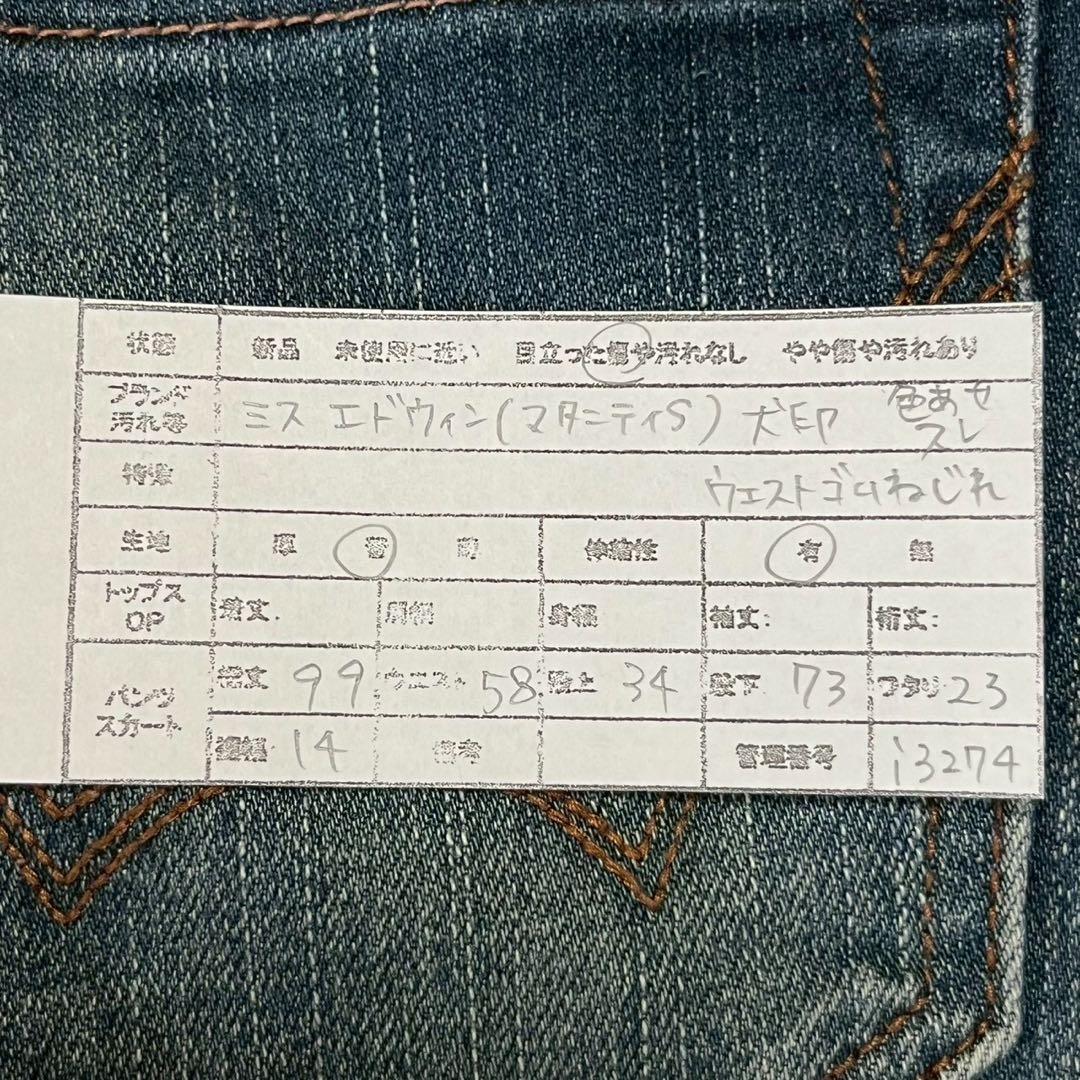 状態 新品 未使用に近い 目立った傷や汚れなし やや傷や汚れあり
ブランド
汚れ等 ミス エドウィン(マタニティS) 犬印 色あせ
スレ
特徴 ウエストゴムねじれ
生地 厚 普 薄 伸縮性 有 無
トップス
OP 着丈: 肩幅 身幅 袖丈: 裄丈:
パンツ
スカート 総丈 99 ウエスト 58 股上 34 股下 73 ワタリ 23
裾幅 14 備考 管理番号 i3274